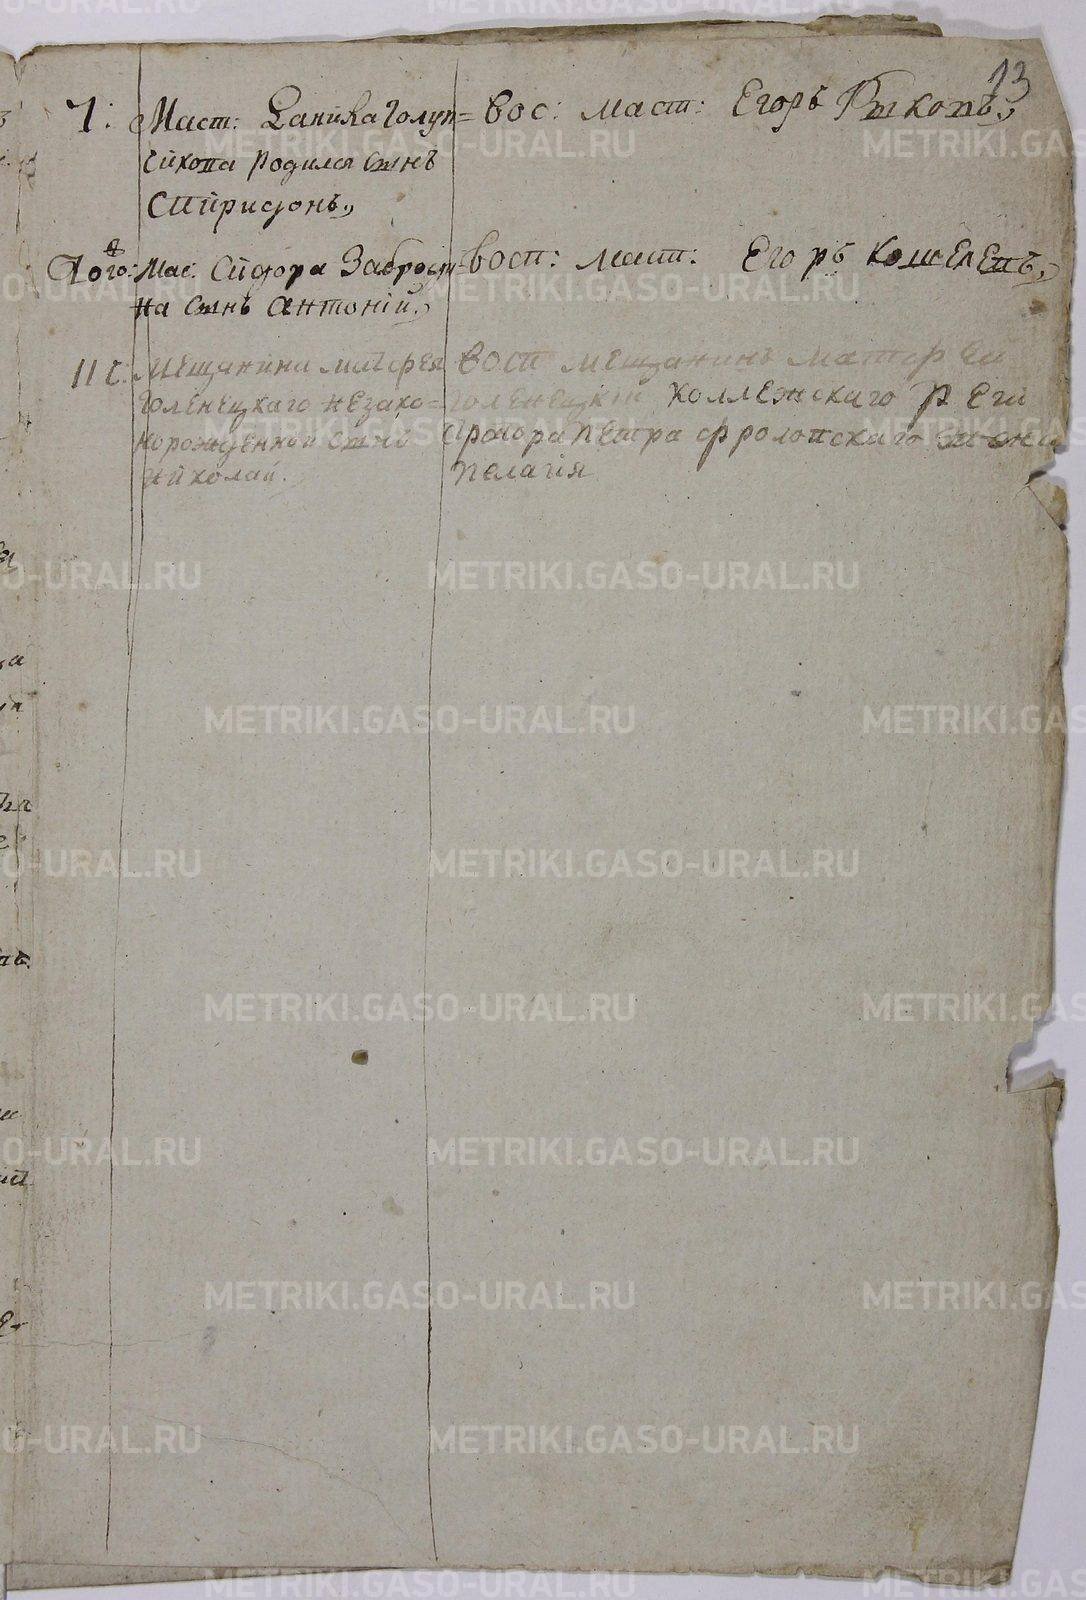 13
7: Маст: Данила Голуп=
чикопа родился сынъ
Спиридонъ,,
вос: маст: Егоръ Рыкопъ,,
Того: Мас: Сидора Забросп=
на сынъ Антоній,,
вост: маст: Егоръ Кошелепъ,,
11 г. Мещанина Матфея
Голенецкаго незако=
норожденный сынъ
Николай.
вост мещанинъ Матфей
Голенецкій коллежскаго реги
стратора Петра Фролопскаго жена
Пелагія
METRIKI.GASO-URAL.RU